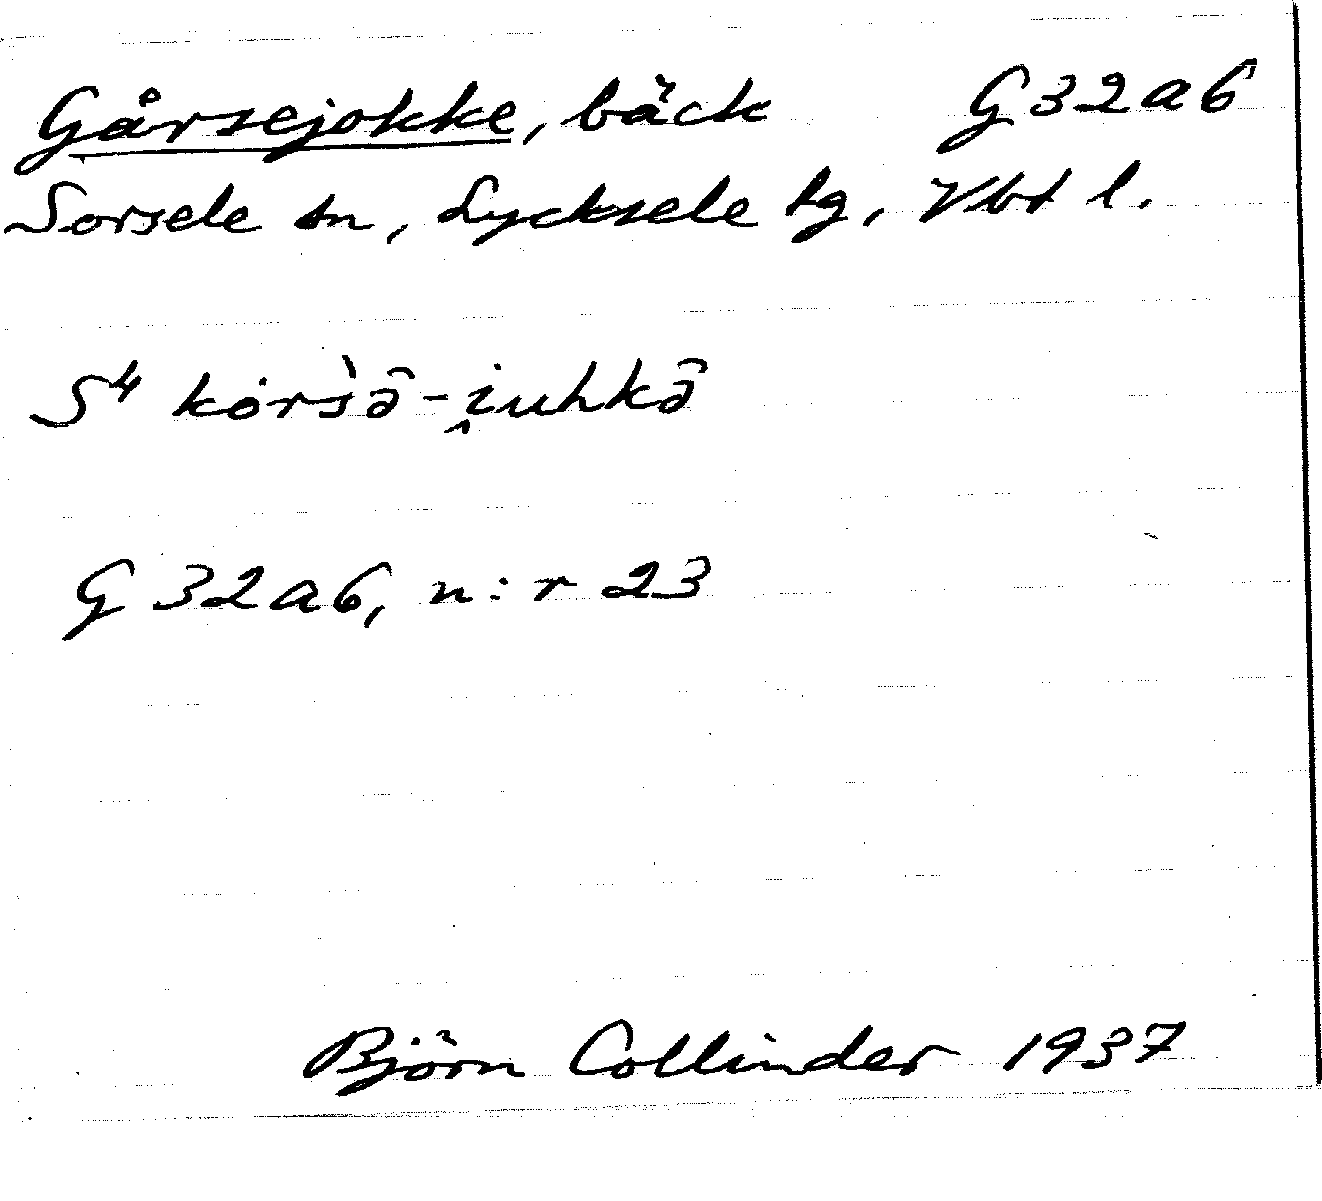 Gårsejokke, bäck G32a6
Sorsele sn, Lycksele tg, Vbt l.
S4 kȯrs̀â-i̭uhkâ
G 32a6, n:r 23
Björn Collinder 1937